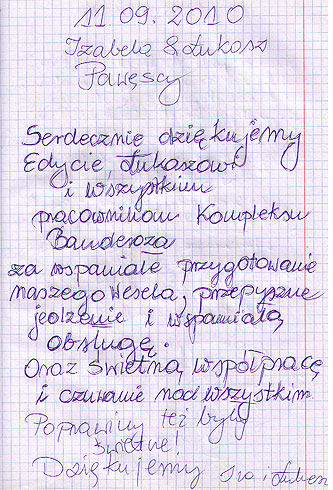 11 09. 2010
Izabela & Łukasz
Pawęscy
Serdecznie dziękujemy
Edycie Łukaszowi
i wszystkim
pracownikom Kompleksu
Banderoza
za wspaniałe przygotowanie
naszego wesela, przepyszne
jedzenie i wspaniałą
obsługę.
Oraz świetną współpracę
i czuwanie nad wszystkim
Poprawiny też były
świetne!
Dziękujemy i Łukasz